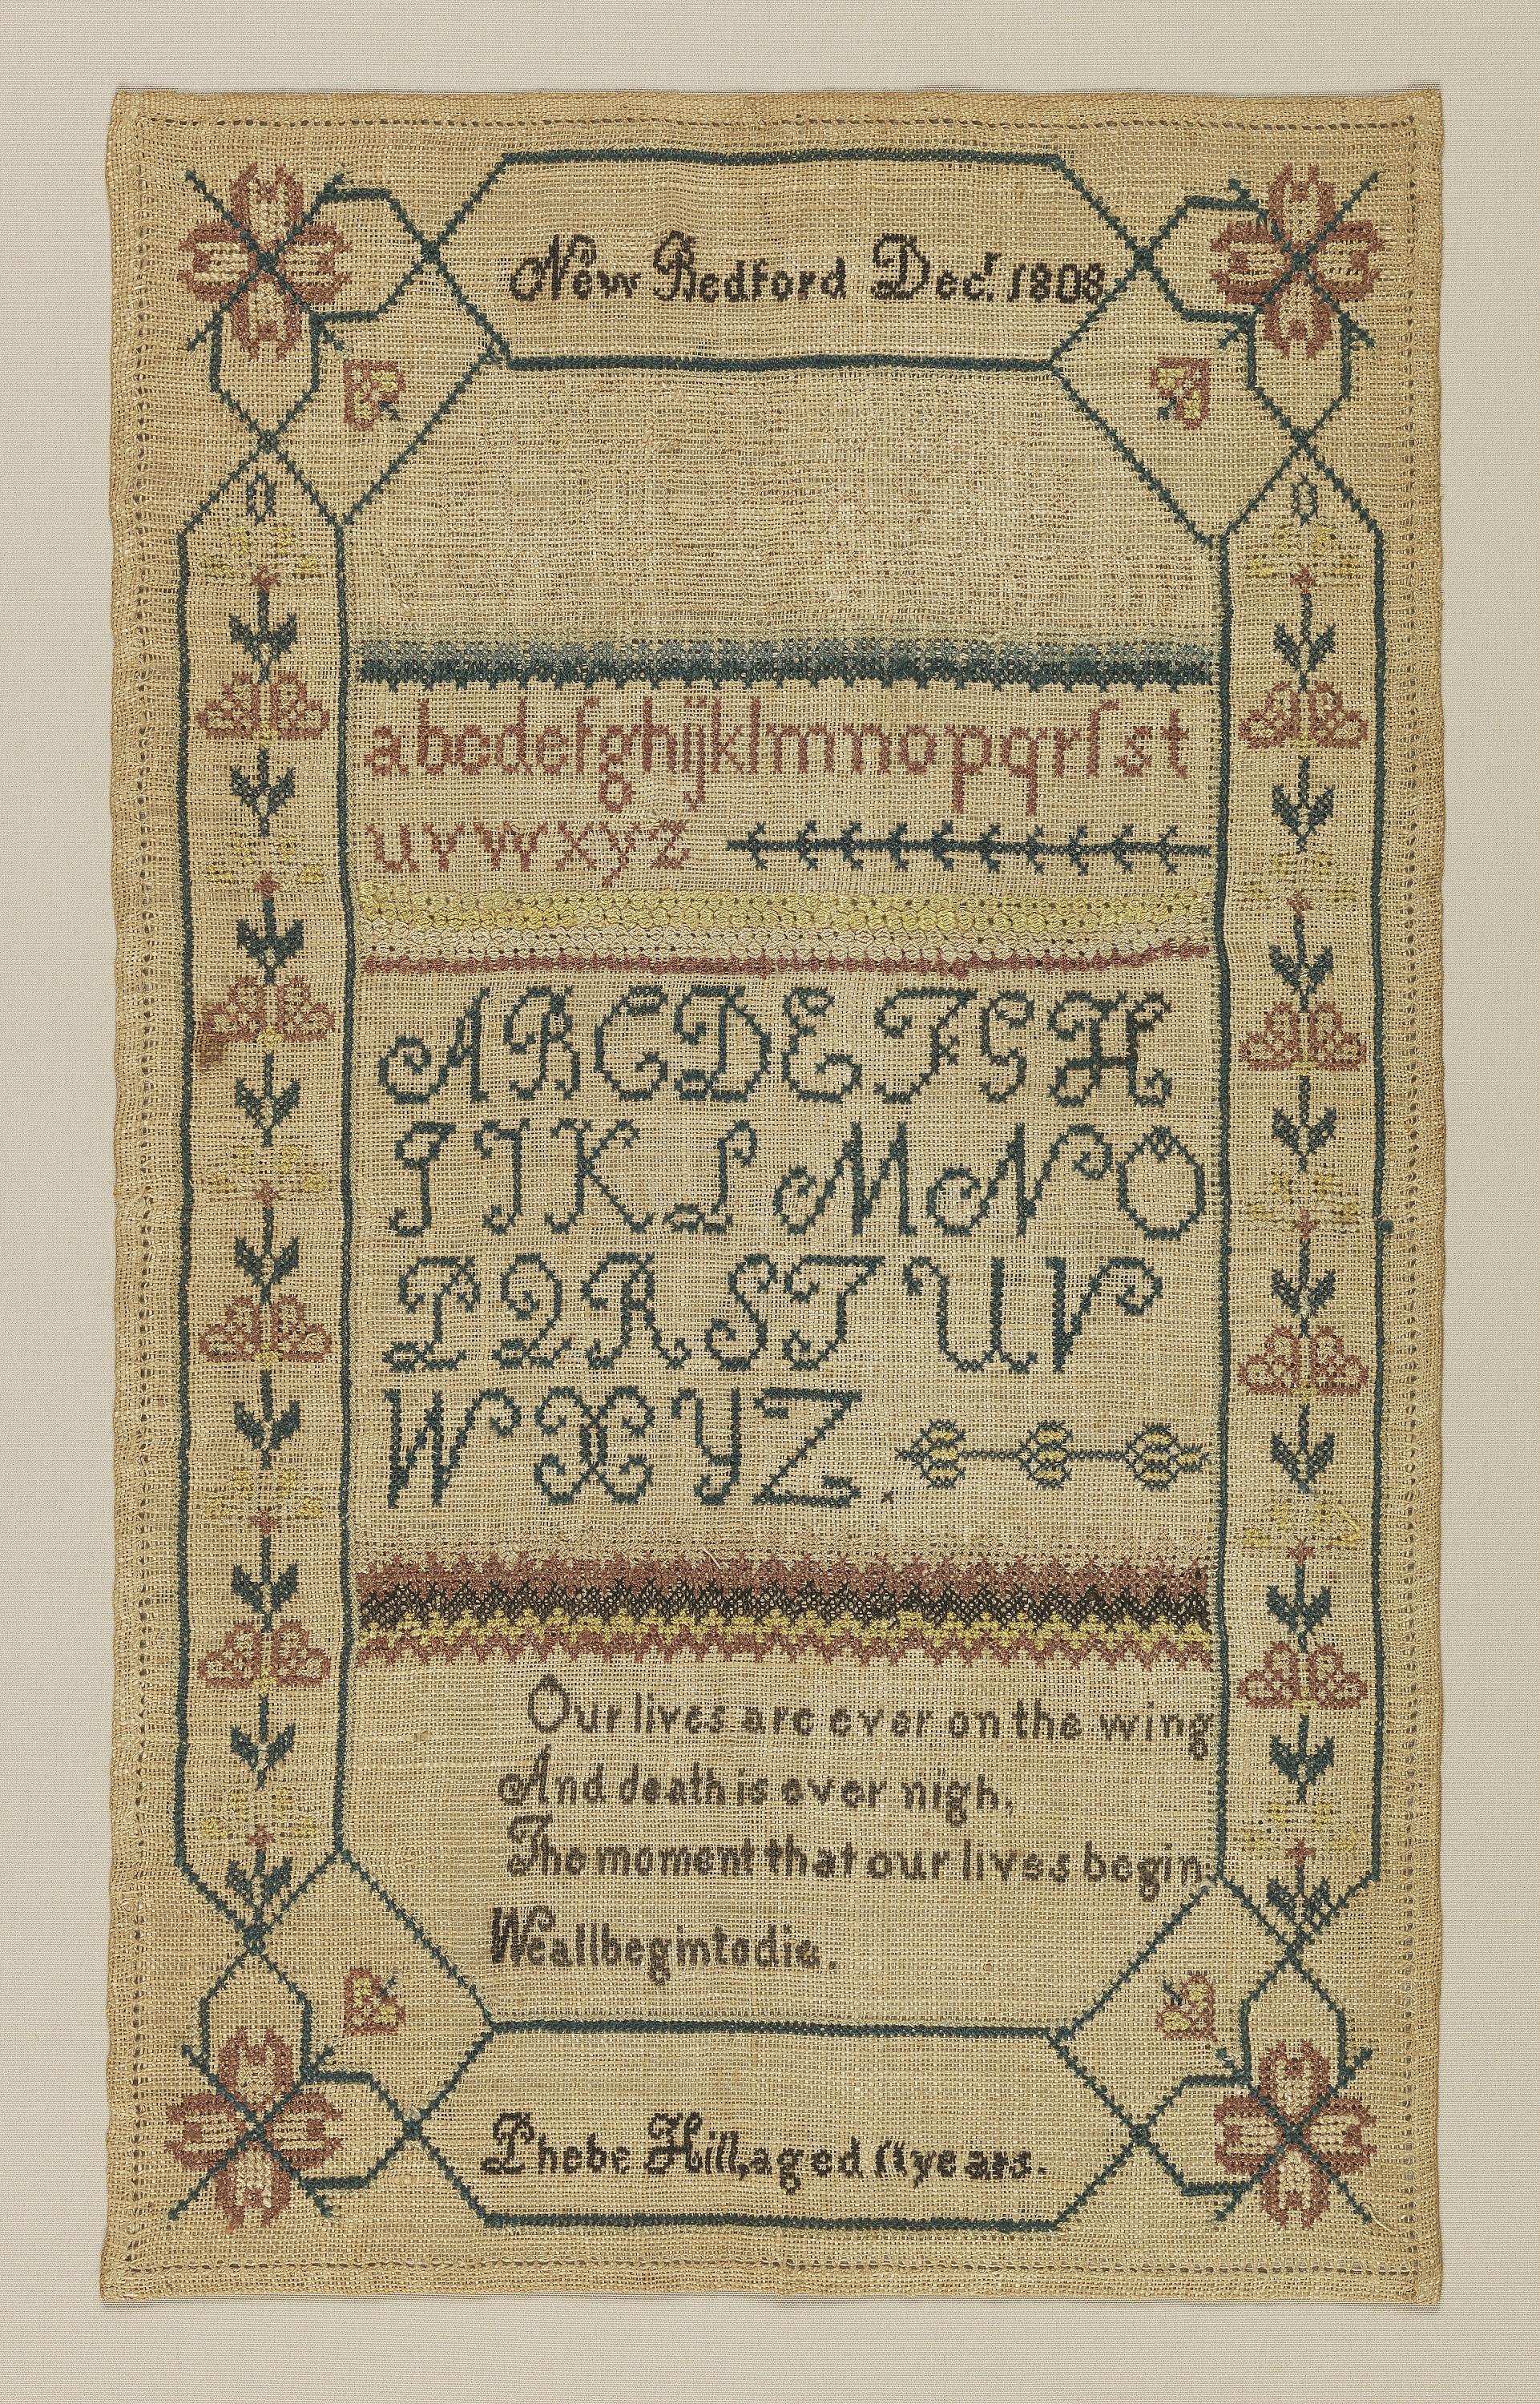 New Bedford Decr. 1808
abcdefghijklmnopqrſst
uvwxyz
ABCDEFGH
IJKLMNO
PQRSTUV
WXYZ.
Our lives are ever on the wing
And death is ever nigh,
The moment that our lives begin
We all begin to die.
Phebe Hill, aged 11 years.